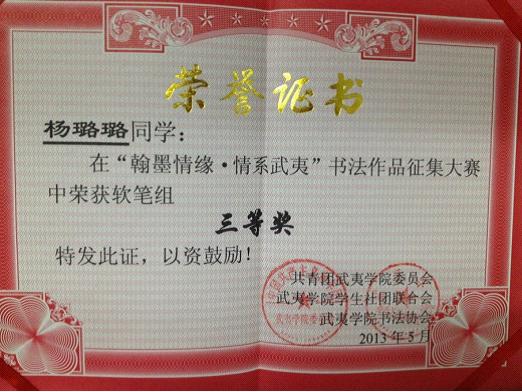 荣誉证书
杨璐璐同学：
在“翰墨情缘·情系武夷”书法作品征集大赛
中荣获软笔组
三等奖
特发此证，以资鼓励！
共青团武夷学院委员会
武夷学院学生社团联合会
武夷学院书法协会
2013年5月